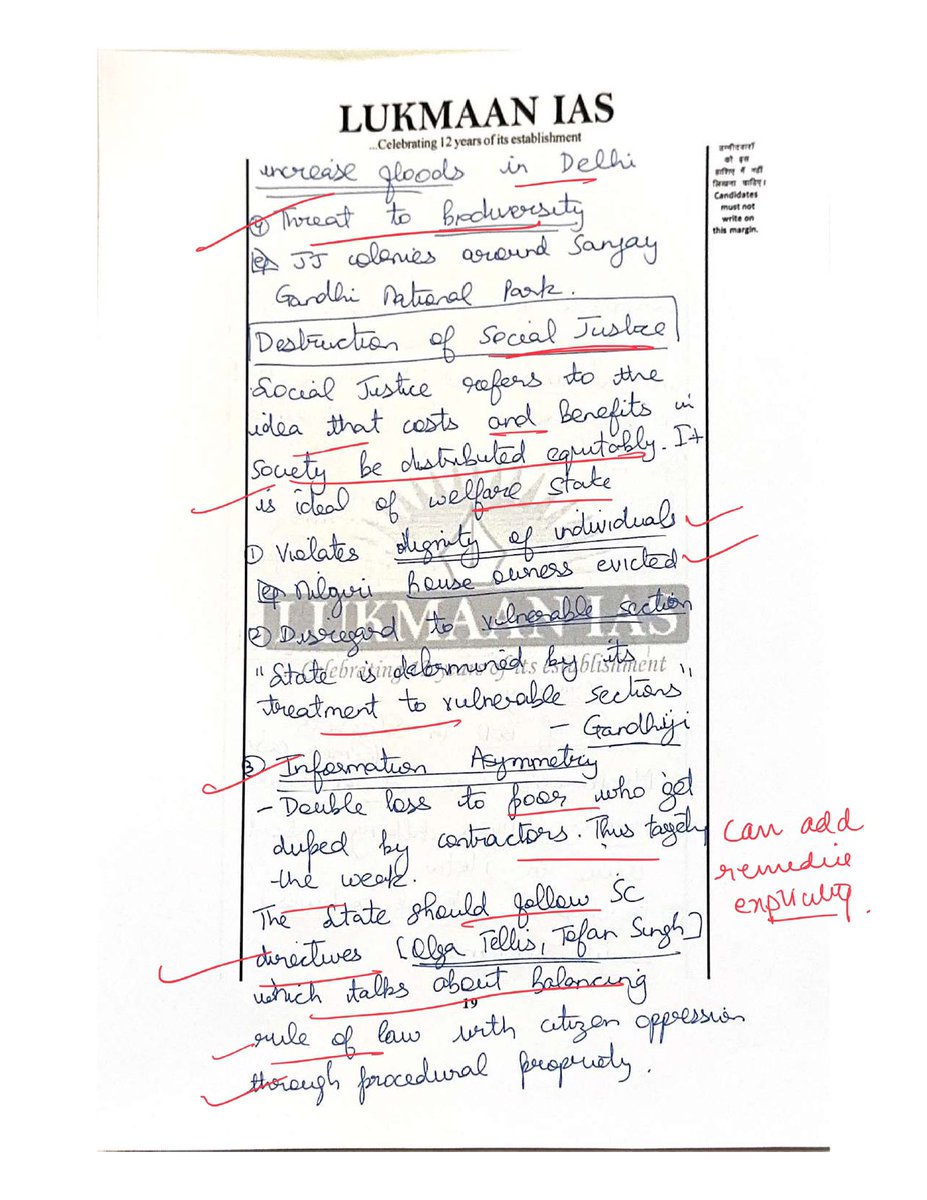 LUKMAAN IAS
...Celebrating 12 years of its establishment
उम्मीदवारों
को इस
हाशिए में नहीं
लिखना चाहिए।
Candidates
must not
write on
this margin.
increase floods in Delhi
④ Threat to biodiversity
eg JJ colonies around Sanjay
Gandhi National Park.
Destruction of Social Justice
Social Justice refers to the
idea that costs and benefits in
society be distributed equitably. It
is ideal of welfare state
① Violates dignity of individuals
eg Nilgiri house owners evicted
LUKMAAN IAS
② Disregard to vulnerable section
Celebrating 12 years of its establishment
"State is determined by its
treatment to vulnerable sections"
- Gandhiji
③ Information Asymmetry
- Double loss to poor who get
duped by contractors. Thus
the weak.
can add
remedies
explicitly.
The State should follow SC
directives [Olga Tellis, Tofan Singh]
which talks about balancing
19
rule of law with citizen oppression
through procedural propriety.